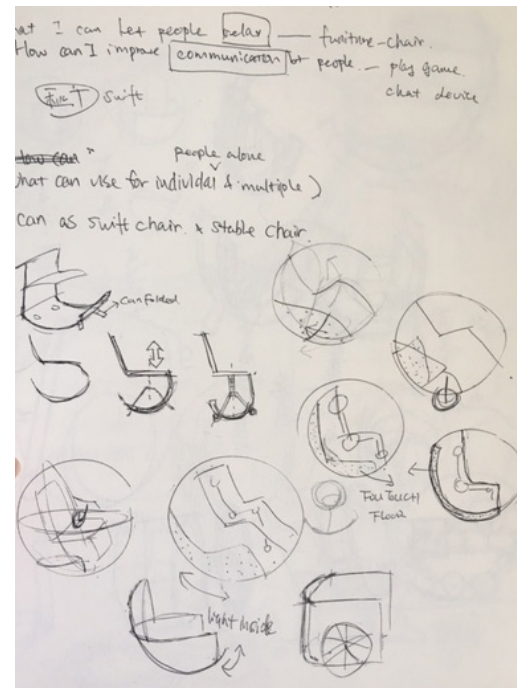 at I can let people relax — furniture-chair.
How can I improve communication bt people. — play game.
chat device
swift
people alone
hat can use for individal & multiple )
can as swift chair. & stable chair
can Folded
Fou Touch
Floor
light inside